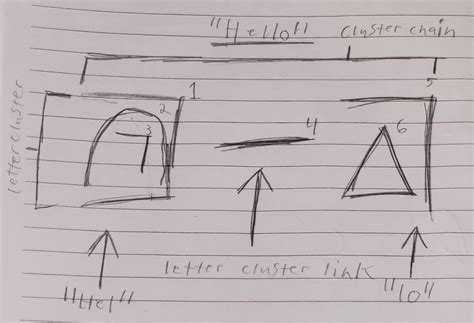 "Hello"
cluster chain
letter cluster
1
2
3
4
5
6
letter cluster link
"Hel"
"lo"